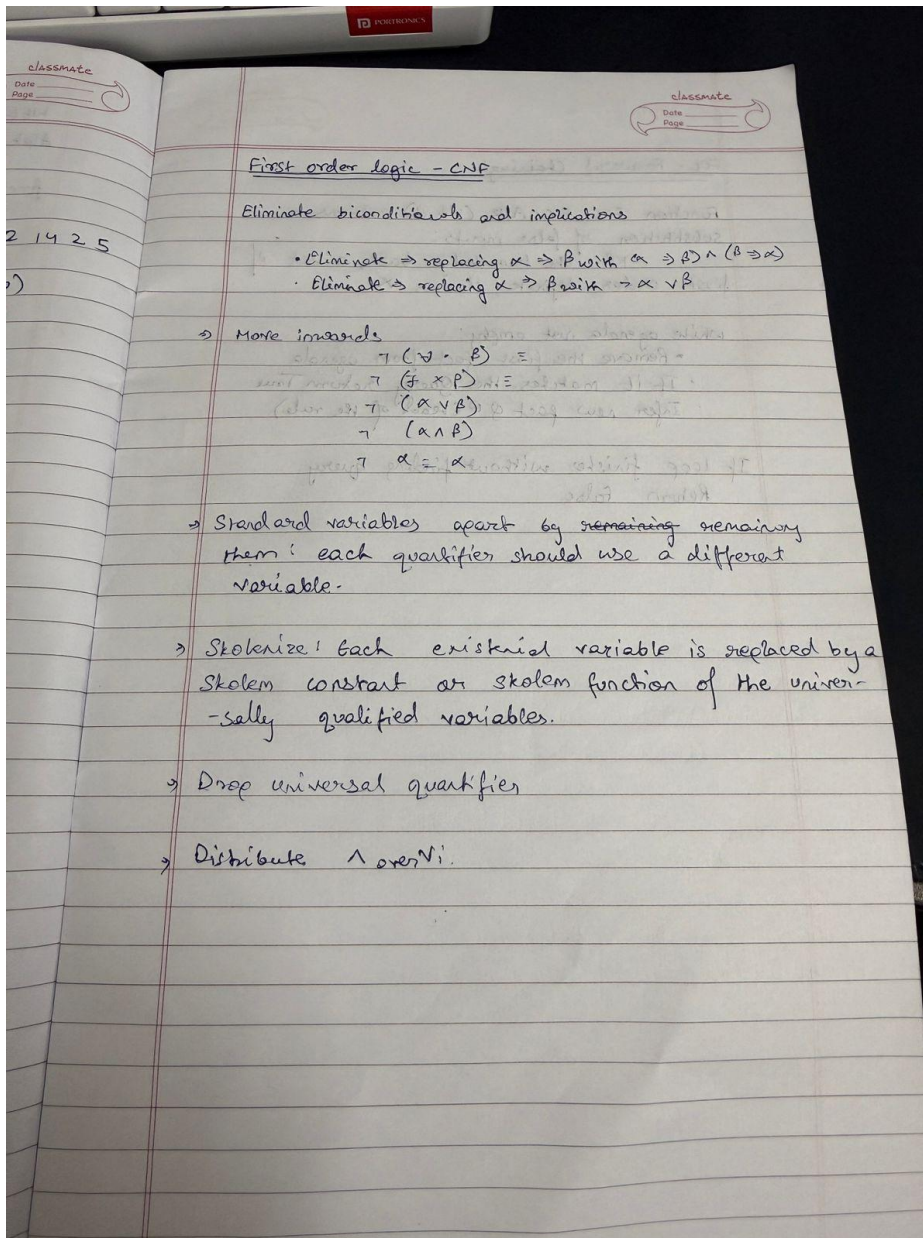 PORTRONICS
classmate
Date
Page
2 14 2 5
)
classmate
Date
Page
First order logic - CNF
Eliminate biconditionals and implications
• Eliminate ⇒ replacing α ⇒ β with (α ⇒ β) ∧ (β ⇒ α)
· Eliminate ⇒ replacing α ⇒ β with ¬ α ∨ β
⇒ Move inwards
¬ (∀ · β) ≡
¬ (∃ x p) ≡
¬ (α ∨ β)
¬ (α ∧ β)
¬ α ≡ α
⇒ Standard variables apart by remaining remaining
them : each quantifier should use a different
variable.
⇒ Skolenize : Each existenial variable is replaced by a
Skolem constant or skolem function of the univer-
-sally qualified variables.
⇒ Drop universal quantifier
⇒ Distribute ∧ over